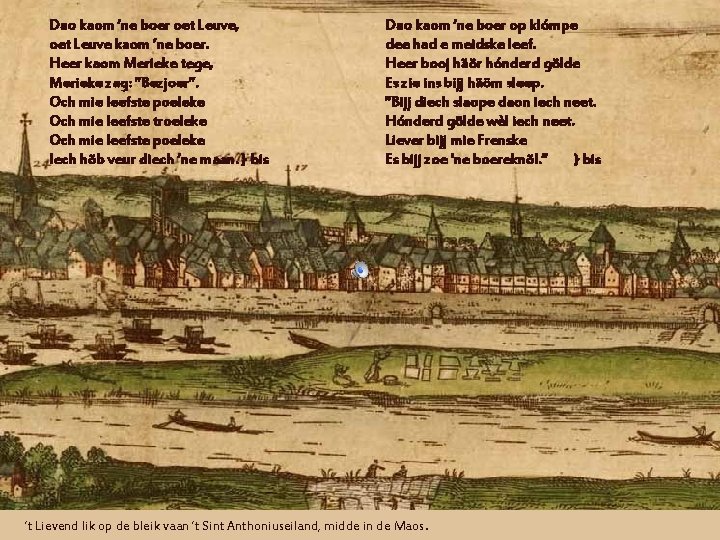 Dao kaom ’ne boer oet Leuve,
oet Leuve kaom ’ne boer.
Heer kaom Merieke tege,
Merieke zag: "Bezjoer".
Och mie leefste poeleke
Och mie leefste troeleke
Och mie leefste poeleke
Iech höb veur diech ’ne maan. } bis
Dao kaom ’ne boer op klómpe
dee had e meidske leef.
Heer booj häör hónderd gölde
Es zie ins bijj hääm sleep.
"Bijj diech slaope daon iech neet.
Hónderd gölde wèl iech neet.
Liever bijj mie Frenske
Es bijj zoe 'ne boereknöl.” } bis
24
17
‘t Lievend lik op de bleik vaan ‘t Sint Anthoniuseiland, midde in de Maos.